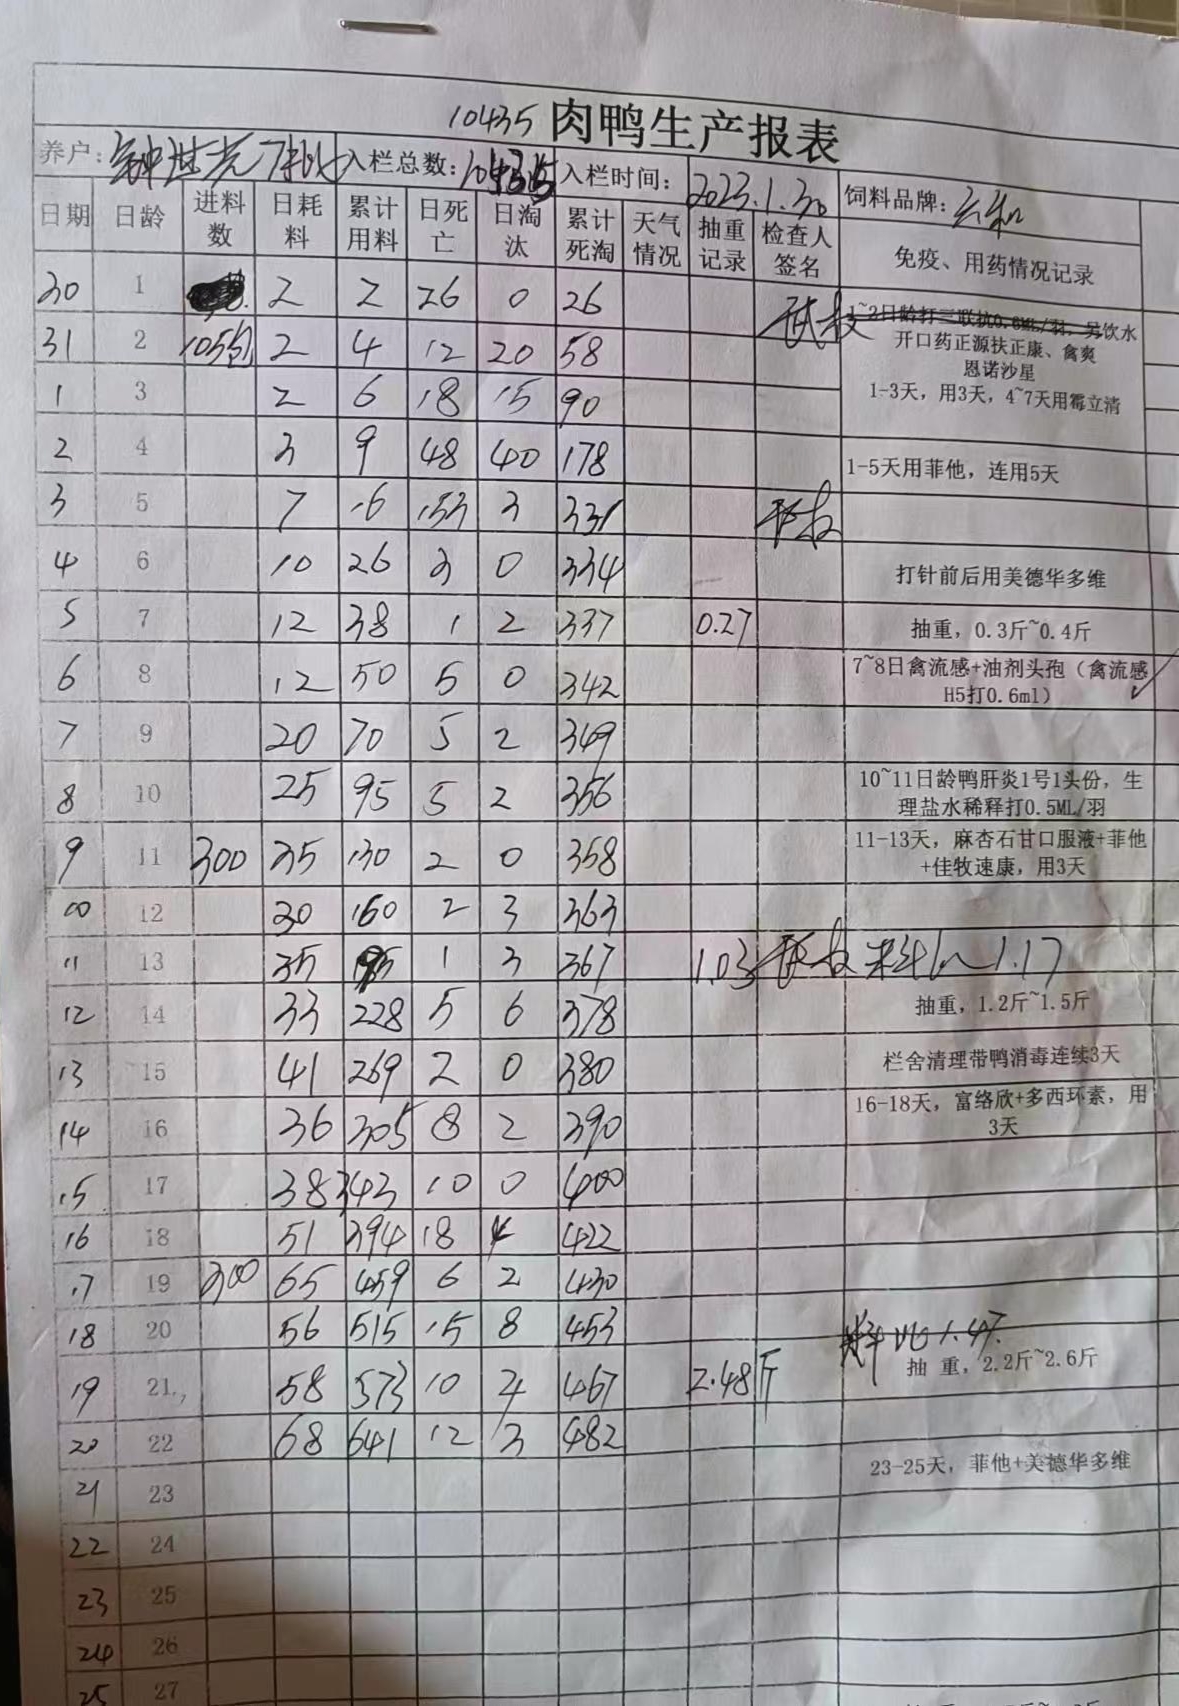 10435 肉鸭生产报表
养户: 钟世光 入栏总数: 10435 入栏时间: 2023.1.30 饲料品牌:
日期 日龄 进料数 日耗料 累计用料 日死亡 日淘汰 累计死淘 天气情况 抽重记录 检查人签名 免疫、用药情况记录
30 1 2 2 26 0 26 1~2日龄打三联抗0.6ML/羽,另饮水
31 2 105包 2 4 12 20 58 开口药正源扶正康、禽爽
恩诺沙星
1 3 2 6 18 15 90 1-3天,用3天,4~7天用霉立清
2 4 3 9 48 40 178 1-5天用菲他,连用5天
3 5 7 16 153 3 331
4 6 10 26 3 0 334 打针前后用美德华多维
5 7 12 38 1 2 337 0.27 抽重,0.3斤~0.4斤
6 8 12 50 5 0 342 7~8日禽流感+油剂头孢(禽流感
H5打0.6ml) ✓
7 9 20 70 5 2 349
8 10 25 95 5 2 356 10~11日龄鸭肝炎1号1头份,生
理盐水稀释打0.5ML/羽
9 11 300 35 130 2 0 358 11-13天,麻杏石甘口服液+菲他
+佳牧速康,用3天
10 12 30 160 2 3 363
11 13 35 195 1 3 367 1.03 料比 1.17
12 14 33 228 5 6 378 抽重,1.2斤~1.5斤
13 15 41 269 2 0 380 栏舍清理带鸭消毒连续3天
14 16 36 305 8 2 390 16-18天,富络欣+多西环素,用
3天
15 17 38 343 10 0 400
16 18 51 394 18 4 422
17 19 300 65 459 6 2 430
18 20 56 515 15 8 453 料比 1.47
19 21 58 573 10 4 467 2.48斤 抽 重,2.2斤~2.6斤
20 22 68 641 12 3 482
21 23 23-25天,菲他+美德华多维
22 24
23 25
24 26
25 27